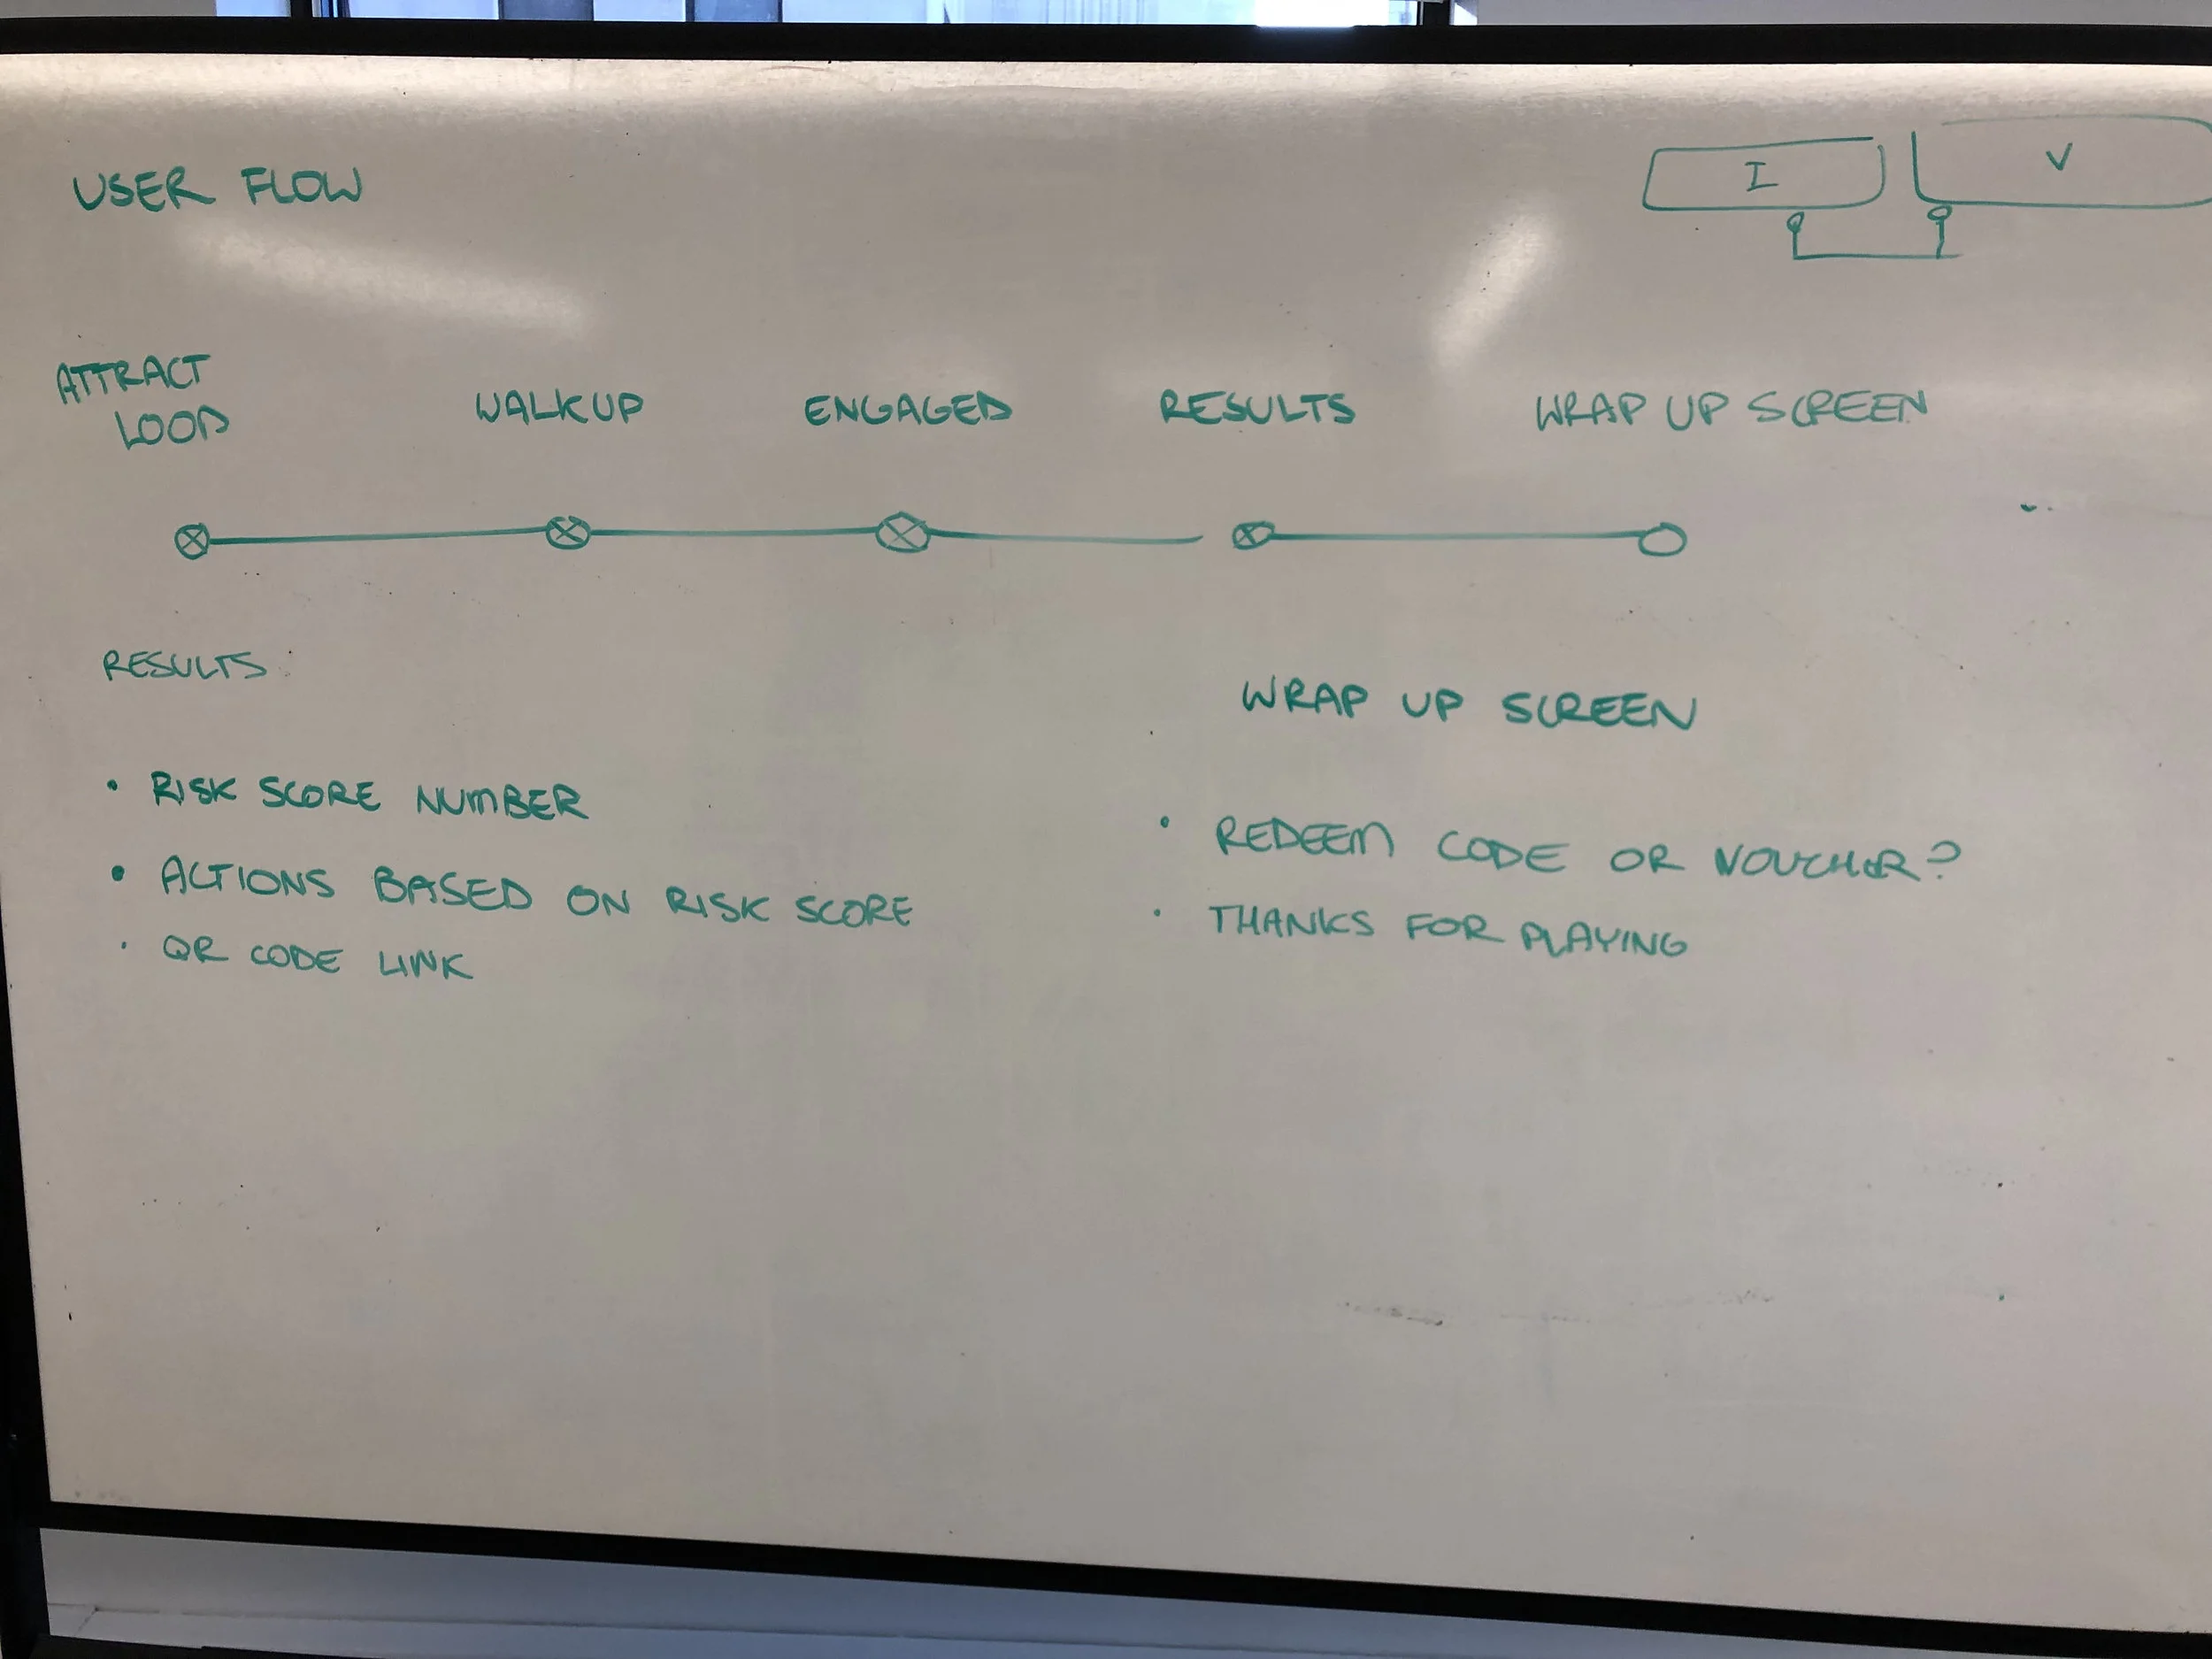 USER FLOW
I
V
ATTRACT
LOOP
WALKUP
ENGAGED
RESULTS
WRAP UP SCREEN
RESULTS:
• RISK SCORE NUMBER
• ACTIONS BASED ON RISK SCORE
• QR CODE LINK
WRAP UP SCREEN
• REDEEM CODE OR VOUCHER?
• THANKS FOR PLAYING